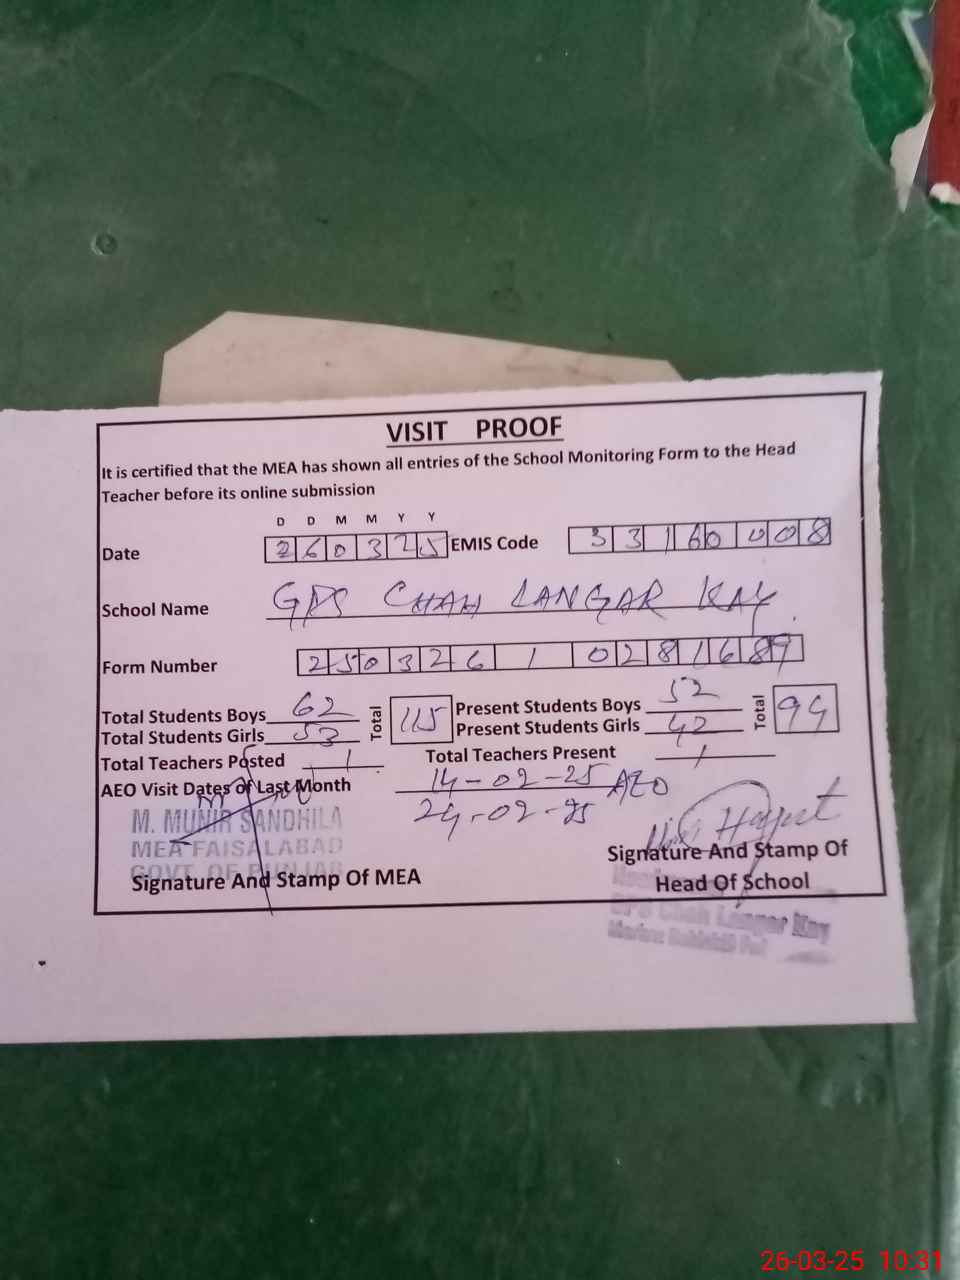 VISIT PROOF
It is certified that the MEA has shown all entries of the School Monitoring Form to the Head
Teacher before its online submission
D D M M Y Y
Date 260325 EMIS Code 33160008
School Name GPS CHAH LANGAR KAY
Form Number 250326 1 0281689
Total Students Boys 62 Total 115 Present Students Boys 52 Total 94
Total Students Girls 53 Present Students Girls 42
Total Teachers Posted 1 Total Teachers Present 1
AEO Visit Dates of Last Month 14-02-25 AEO
24-02-25
M. MUNIR SANDHILA
MEA FAISALABAD
GOVT. OF PUNJAB
Signature And Stamp Of MEA
Signature And Stamp Of
Head Of School
GPS Chah Langar Kay
26-03-25 10:31